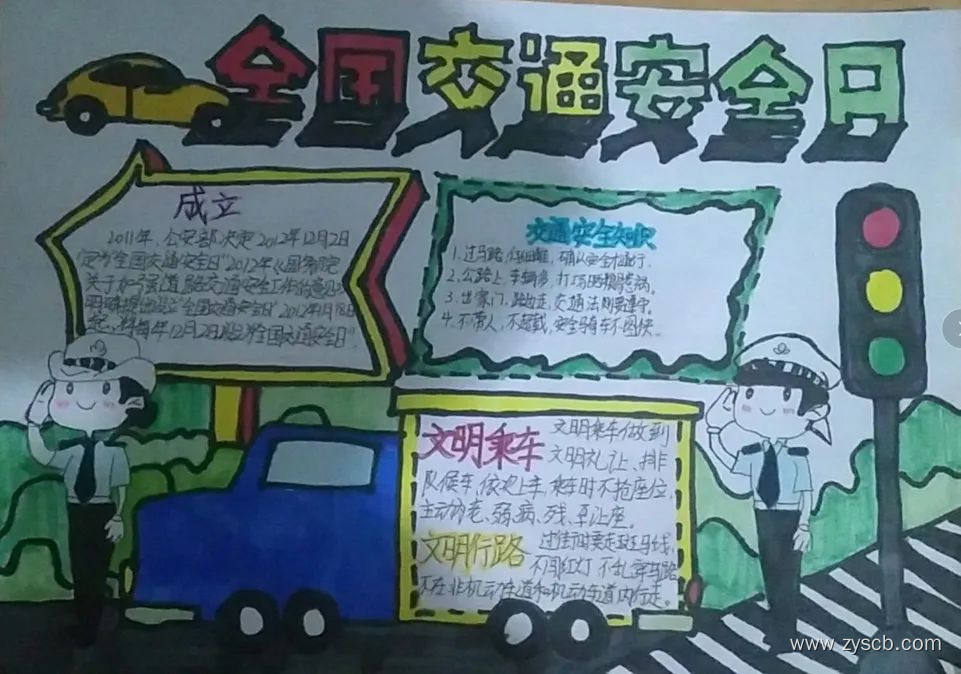 全国交通安全日
成立
2011年，公安部决定2012年12月2日
定为"全国交通安全日"2012年《国务院
关于加强道路交通安全工作的意见》
明确提出设立"全国交通安全日",2012年11月18日
将每年12月2日设为"全国交通安全日".
交通安全知识
1.过马路,仔细瞧,确认安全才通行.
2.公路上,车辆多,打巧
3.出家门,路边走,交通法则要遵守.
4.不带人,不超载,安全骑车不图快.
文明乘车
文明乘车做到
文明礼让、排
队候车,依次上车,乘车时不抢座位,
主动为老、弱、病、残、孕让座。
文明行路
过街时要走斑马线,
不闯红灯 不乱穿马路
不在非机动车道和机动车道内行走。
www.zyscb.com